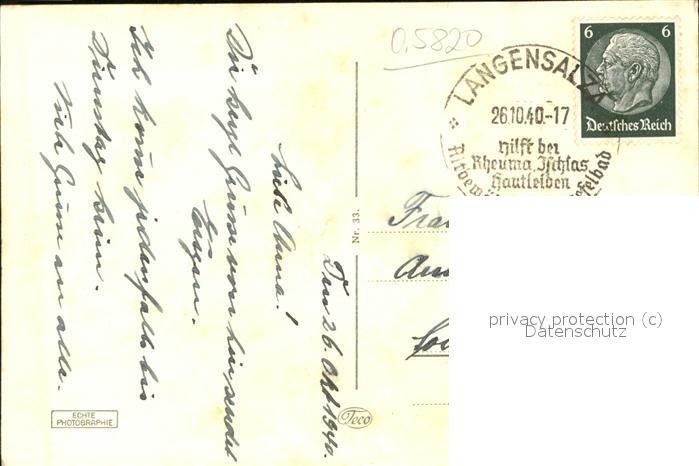 0.5820
LANGENSALZA
26.10.40.-17
Hilft bei
Rheuma, Ischias
Hautleiden
6 6
Deutsches Reich
Den 26. Okt 1940.
Liebe Anna!
Die besten Grüsse von hier sendet
Eugen.
Ich komme jedenfalls bis
Dienstag heim.
Viele Grüsse an alle.
Nr. 33.
Teco
ECHTE
PHOTOGRAPHIE
privacy protection (c)
Datenschutz